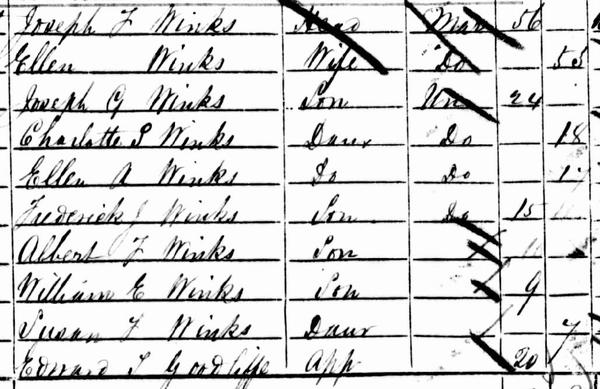 Joseph F Winks Head Mar 56
Ellen Winks Wife Do 55
Joseph G Winks Son Un 24
Charlotte S Winks Daur Do 18
Ellen A Winks Do Do 17
Frederick J Winks Son Do 15
Albert F Winks Son
William E Winks Son 9
Susan F Winks Daur 7
Edward T Goodliffe App 20